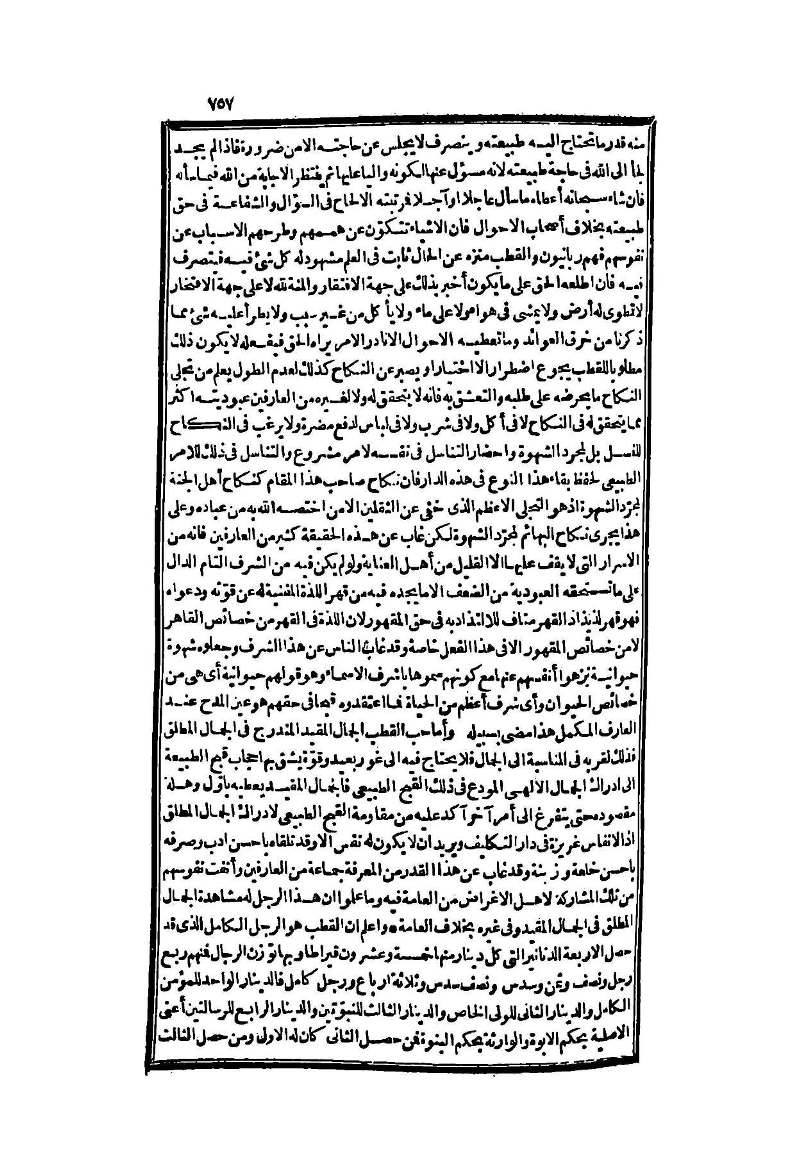 ٧٥٧
منه قدر ما تحتاج اليه طبيعته وينصرف لا يجلس عن حاجته الا من ضرورة فاذا لم يجد
لجأ الى الله فى حاجة طبيعته لانه مسؤل عنها لكونه والياعليها ثم ينتظر الاجابة من الله فيما سأله
فان شاء سبحانه أعطاه ما سأل عاجلا او آجلا فرتبته الالحاح فى السؤال والشفاعة فى حق
طبيعته بخلاف أصحاب الاحوال فان الاشياء تتكون عن هممهم وطرحهم الاسباب عن
نفوسهم فهم ربانيون والقطب منزه عن الحال ثابت فى العلم مشهود له كل شئ فيه فيتصرف
فيه فان اطلعه الحق على ما يكون أخبر بذلك على جهة الافتقار والمنة لله لا على جهة الافتخار
لا تطوى له أرض ولا يمشى فى هواء ولا على ماء ولا يأكل من غير سبب ولا يطرأ عليه شئ مما
ذكرنا من خرق العوائد وما تعطيه الاحوال الا نادر الامر يراه الحق فيفعله لا يكون ذلك
مطلوبا للقطب يجوع اضطرارا لا اختيارا ويصبر عن النكاح كذلك لعدم الطول يعلم من تجلى
النكاح ما يحرضه على طلبه والتعشق به فانه لا يتحقق له ولا لغيره من العارفين عبوديته اكثر
مما يتحقق له فى النكاح لا فى أكل ولا فى شرب ولا فى لباس لدفع مضرة ولا يرغب فى النكاح
للنسل بل لمجرد الشهوة واحضار التناسل فى نفسه لامر مشروع والتناسل فى ذلك للامر
الطبيعى لحفظ بقاء هذا النوع فى هذه الدار فان نكاح صاحب هذا المقام كنكاح أهل الجنة
لمجرد الشهوة اذ هو التجلى الاعظم الذى خفى عن الثقلين الا من اختصه الله به من عباده وعلى
هذا يجرى نكاح البهائم لمجرد الشهوة لكن غاب عن هذه الحقيقة كثير من العارفين فانه من
الاسرار التى لا يقف عليها الا القليل من أهل العناية ولو لم يكن فيه من الشرف التام الدال
على ما تستحقه العبودية من الضعف الا ما يجده فيه من قهر اللذة المفنية له عن قوته ودعواه
فهو قهر لذيذ اذ القهر مناف للالتذاذ به فى حق المقهور لان اللذة فى القهر من خصائص القاهر
لا من خصائص المقهور الا فى هذا الفعل خاصة وقد غاب الناس عن هذا الشرف وجعلوه شهوة
حيوانية نزهوا أنفسهم عنها مع كونهم سموها باشرف الاسماء وهو قولهم حيوانية أى هى من
خصائص الحيوان وأى شرف أعظم من الحياة فما اعتقدوه قبحا فى حقهم هو عين المدح عند
العارف المكمل هذا مضى بسبيله وأما حب القطب الجمال المقيد المندرج فى الجمال المطلق
فذلك لقربه فى المناسبة الى الجمال فلا يحتاج فيه الى غور بعيد وقوة يشق بها حجاب قبح الطبيعة
الى ادراك الجمال الالهى المودع فى ذلك القبح الطبيعى فالجمال المقيد يعطيه باول وهلة
مقصوده حتى يتفرغ الى أمر آخر آكد عليه من مقاومة القبح الطبيعى لادراك الجمال المطلق
اذ الانفاس عزيزة فى دار التكاليف ويريد ان لا يكون له نفس الا وقد تلقاه باحسن ادب وصرفه
باحسن خلعة وزينة وقد غاب عن هذا القدر من المعرفة جماعة من العارفين وأنفت نفوسهم
من تلك المشاركة لاهل الاغراض من العامة فيه وما علموا ان هذا الرجل له مشاهدة الجمال
المطلق فى الجمال المقيد وفى غيره بخلاف العامة * واعلم ان القطب هو الرجل الكامل الذى قد
حصل الاربعة الدنانير التى كل دينار منها خمسة وعشرون قيراطا وبها توزن الرجال فمنهم ربع
رجل ونصف وثمن وسدس ونصف سدس وثلاثة ارباع ورجل كامل فالدينار الواحد للمؤمن
الكامل والدينار الثانى للولى الخاص والدينار الثالث للنبوتين والدينار الرابع للرسالتين أعنى
الاصلية بحكم الابوة والوارثة بحكم البنوة فمن حصل الثانى كان له الاول ومن حصل الثالث